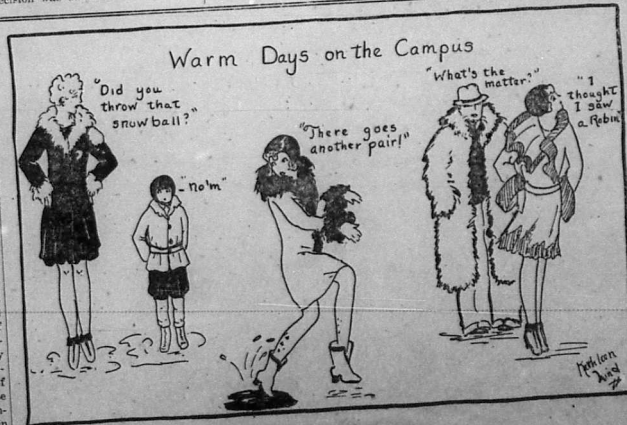 Warm Days on the Campus
"Did you
throw that
snowball?"
"no'm"
"There goes
another pair!"
"What's the
matter?"
"I
thought
I saw
a Robin"
Kathleen